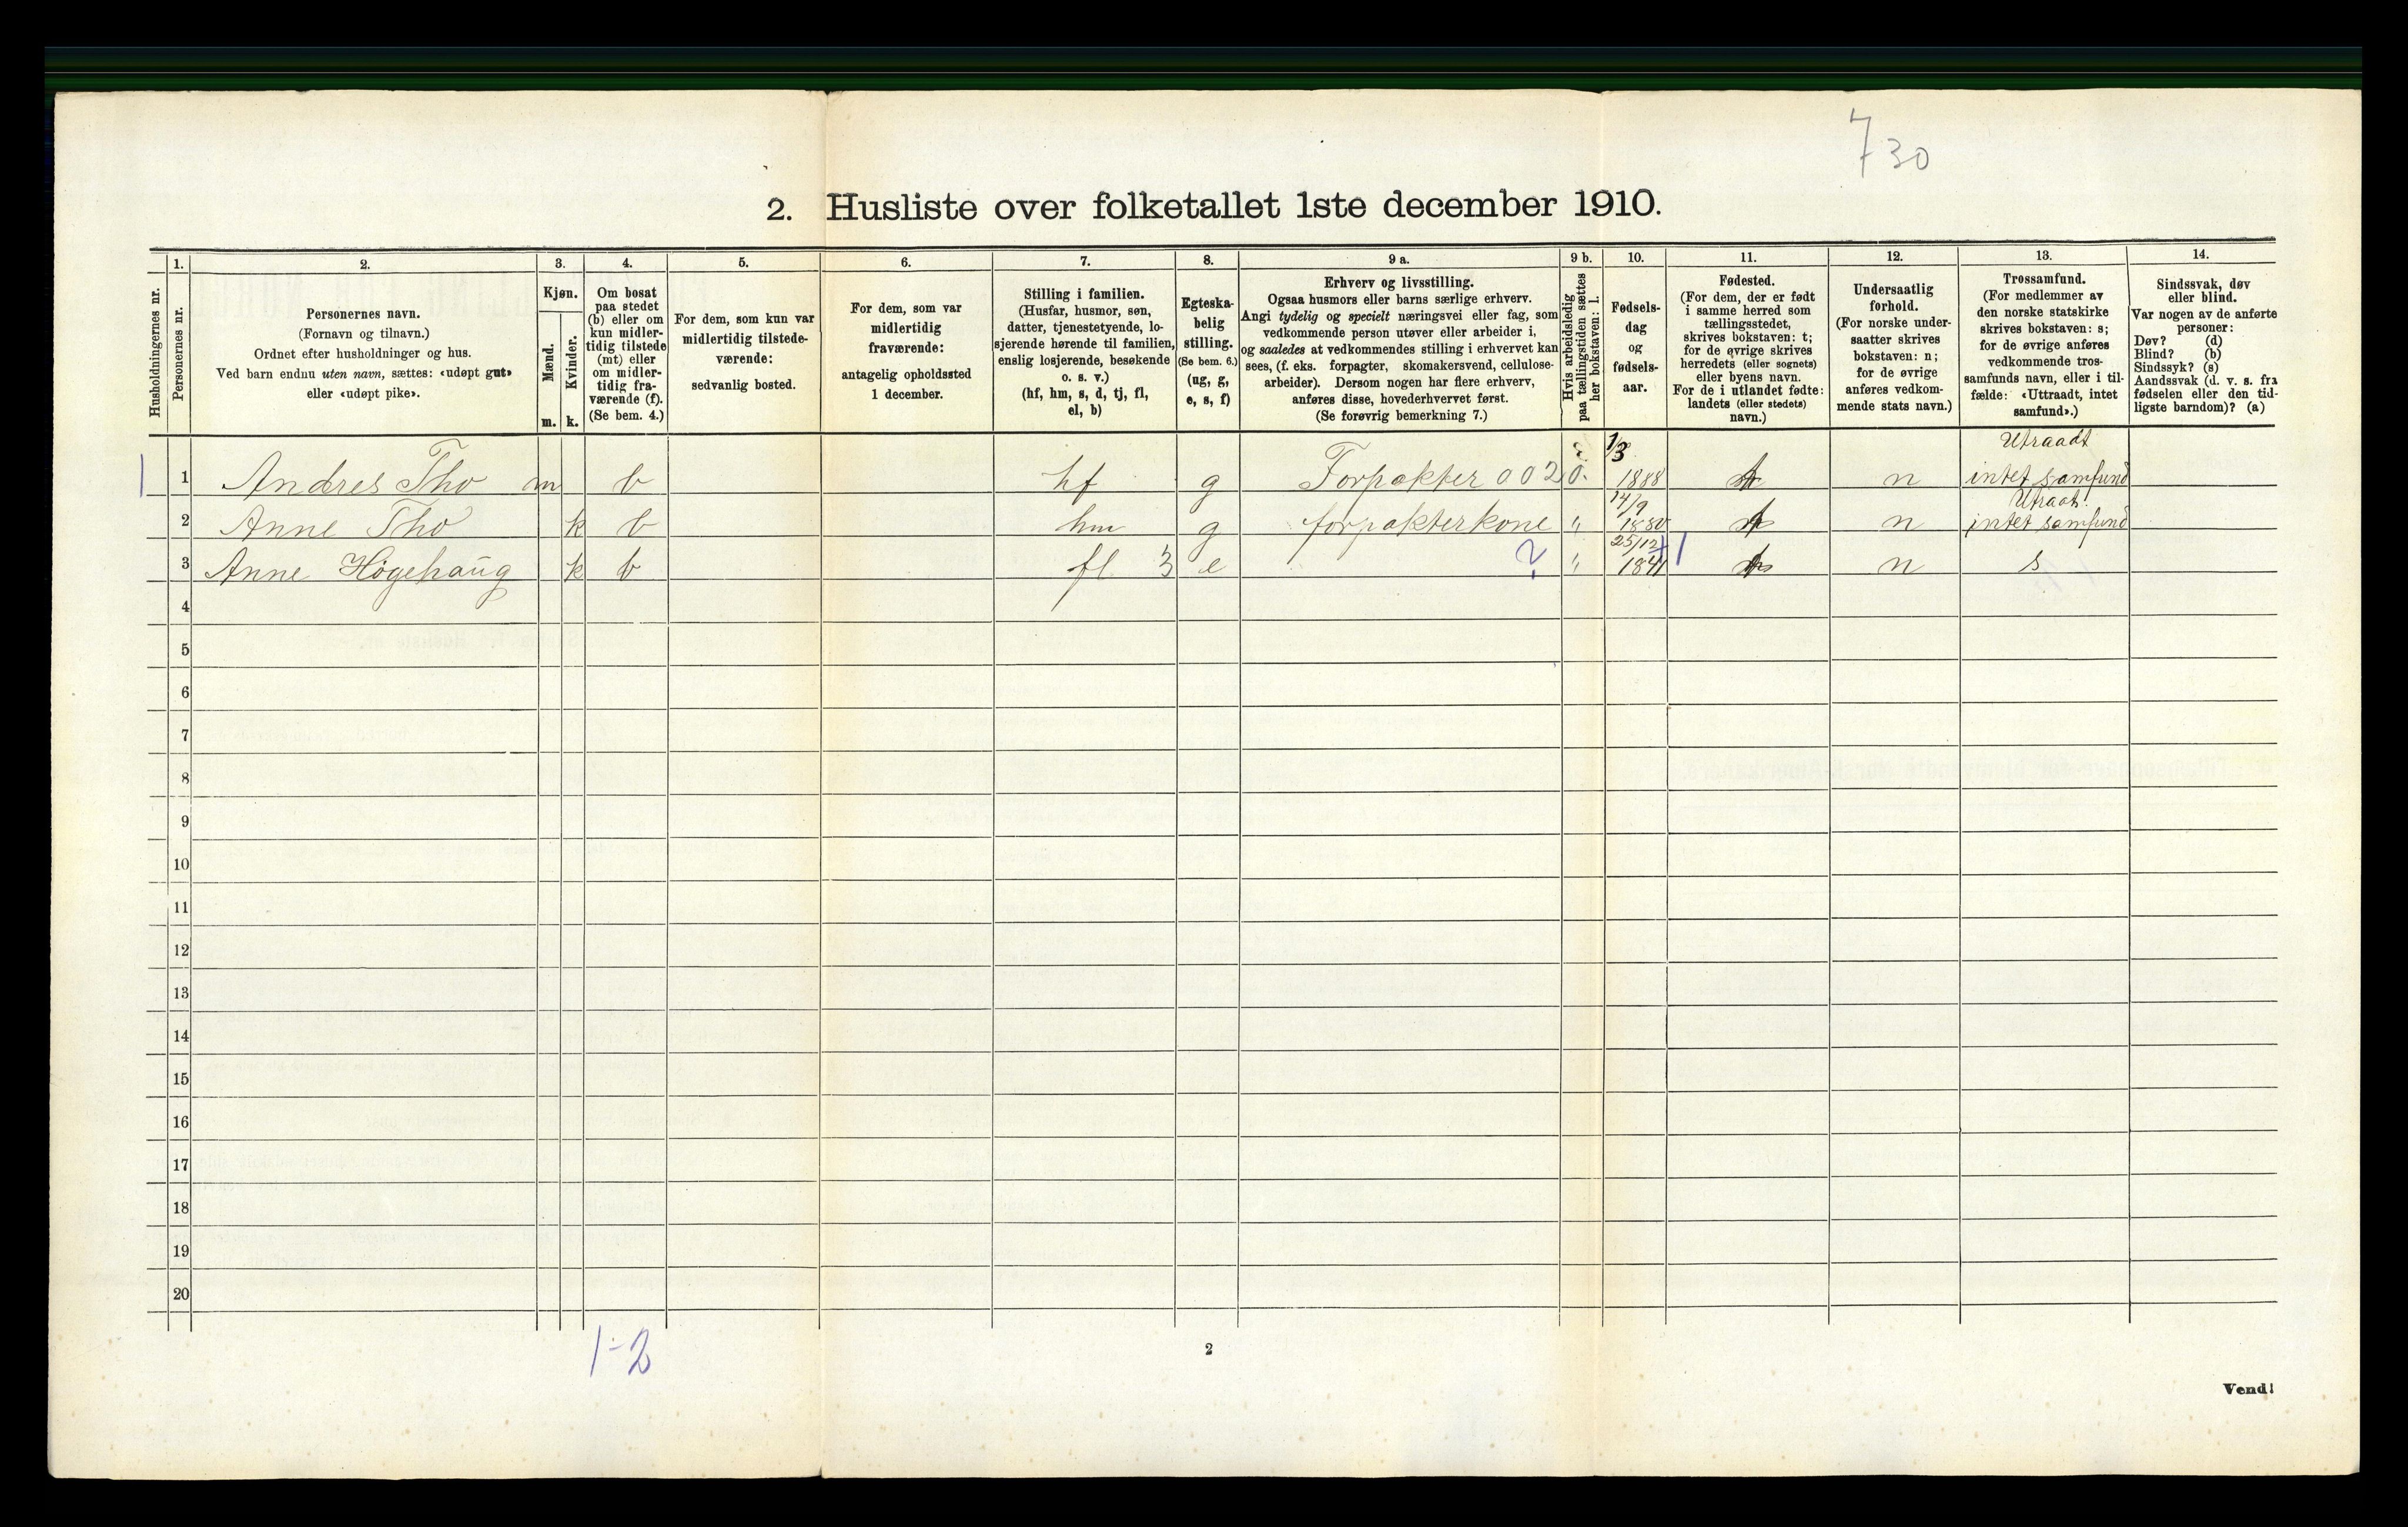 730
2. Husliste over folketallet 1ste december 1910.
Husholdningernes nr.
1.
Personernes nr.
2.
Personernes navn.
(Fornavn og tilnavn.)
Ordnet efter husholdninger og hus.
Ved barn endnu uten navn, sættes: «udøpt gut»
eller «udøpt pike».
3.
Kjøn.
Mænd.
Kvinder.
m. k.
4.
Om bosat
paa stedet
(b) eller om
kun midler-
tidig tilstede
(mt) eller
om midler-
tidig fra-
værende (f).
(Se bem. 4.)
5.
For dem, som kun var
midlertidig tilstede-
værende:
sedvanlig bosted.
6.
For dem, som var
midlertidig
fraværende:
antagelig opholdssted
1 december.
7.
Stilling i familien.
(Husfar, husmor, søn,
datter, tjenestetyende, lo-
sjerende hørende til familien,
enslig losjerende, besøkende
o. s. v.)
(hf, hm, s, d, tj, fl,
el, b)
8.
Egteska-
belig
stilling.
(Se bem. 6.)
(ug, g,
e, s, f)
9 a.
Erhverv og livsstilling.
Ogsaa husmors eller barns særlige erhverv.
Angi tydelig og specielt næringsvei eller fag, som
vedkommende person utøver eller arbeider i,
og saaledes at vedkommendes stilling i erhvervet kan
sees, (f. eks. forpagter, skomakersvend, cellulose-
arbeider). Dersom nogen har flere erhverv,
anføres disse, hovederhvervet først.
(Se forøvrig bemerkning 7.)
9 b.
Hvis arbeidsledig
paa tællingstiden sættes
her bokstaven: l.
10.
Fødsels-
dag
og
fødsels-
aar.
11.
Fødested.
(For dem, der er født
i samme herred som
tællingsstedet,
skrives bokstaven: t;
for de øvrige skrives
herredets (eller sognets)
eller byens navn.
For de i utlandet fødte:
landets (eller stedets)
navn.)
12.
Undersaatlig
forhold.
(For norske under-
saatter skrives
bokstaven: n;
for de øvrige
anføres vedkom-
mende stats navn.)
13.
Trossamfund.
(For medlemmer av
den norske statskirke
skrives bokstaven: s;
for de øvrige anføres
vedkommende tros-
samfunds navn, eller i til-
fælde: «Uttraadt, intet
samfund».)
14.
Sindssvak, døv
eller blind.
Var nogen av de anførte
personer:
Døv? (d)
Blind? (b)
Sindssyk? (s)
Aandssvak (d. v. s. fra
fødselen eller den tid-
ligste barndom)? (a)
1/3 Utraadt
1 1 Andres Tho m b hf g Forpakter 0020. 1888 n intet samfund
14/9 Utraat
2 Anne Tho k b hm g forpakterkone " 1880 n intet samfund
25/12
3 Anne Högehaug k b fl 3 e ? " 1841 1 n s
4
5
6
7
8
9
10
11
12
13
14
15
16
17
18
19
20
1-2
2
Vend!